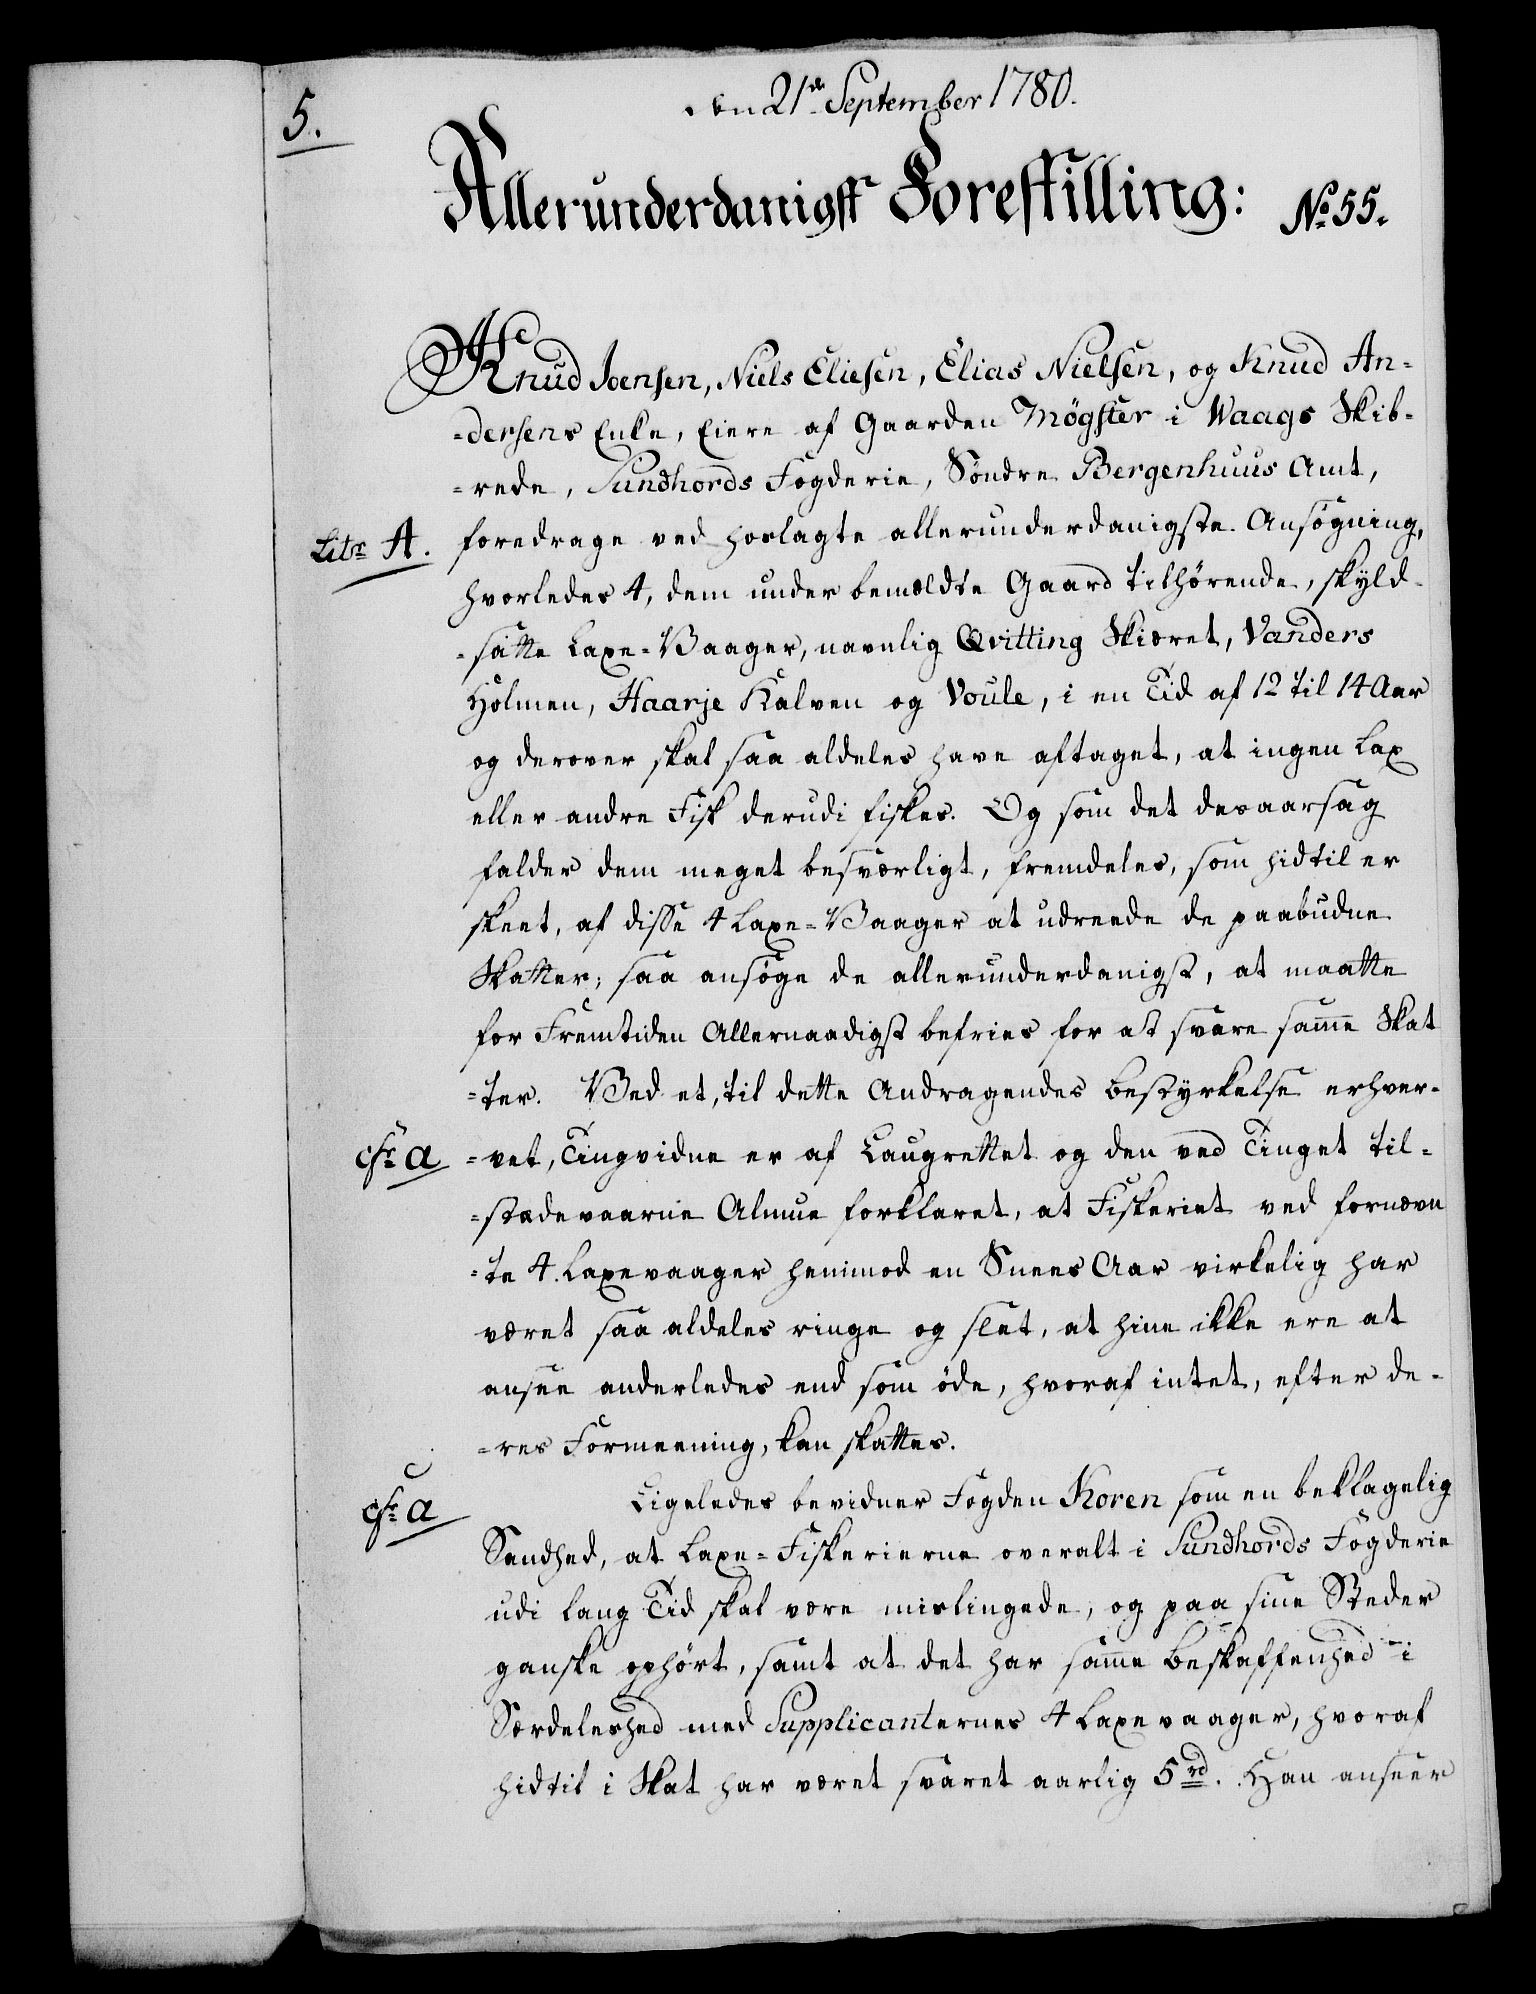 5.
den 21de September 1780.
Allerunderdanigst Forestilling: No 55.
Knud Joensen, Niels Eliesen, Elias Nielsen, og Knud An-
=dersens Enke, Eiere af Gaarden Mögster i Waags Skib-
=rede, Sundhords Fogderie, Söndre Bergenhuus Amt,
Litr A. foredrage ved hoslagte allerunderdanigste Ansøgning,
hvorledes 4, dem under bemældte Gaard tilhørende, skyld-
=satte Laxe-Vaager, navnlig Qvitting Skiæret, Vanders
Holmen, Haarje Kalven og Voule, i en Tid af 12 til 14 Aar
og derover skal saa aldeles have aftaget, at ingen Lax
eller andre Fisk derudi fiskes. Og som det desaarsag
falder dem meget besværligt, fremdeles, som hidtil er
skeet, af disse 4 Laxe-Vaager at udreede de paabudne
Skatter; saa ansøge de allerunderdanigst, at maatte
for Fremtiden Allernaadigst befries for at svare samme Skat
=ter. Ved et, til dette Andragendes Bestyrkelse erhver-
cfr a =vet, Tingvidne er af Laugrettet og den ved Tinget til-
=stædeværne Almue forklaret, at Fiskeriet ved fornævn
=te 4. Laxevaager henimod en Snees Aar virkelig har
været saa aldeles ringe og slet, at hine ikke ere at
ansee anderledes end som øde, hvoraf intet, efter de-
=res Formeening, kan skattes.
cfr a Ligeledes bevidner Fogden Koren som en beklagelig
Sandhed, at Laxe-Fiskerierne overalt i Sundhords Fogderie
udi lang Tid skal være mislingede, og paa sine Steder
ganske ophørt, samt at det har samme Beskaffenhed i
Særdeleshed med Supplicanternes 4 Laxevaager, hvoraf
hidtil i Skat har været svaret aarlig 5 rd. Han anseer